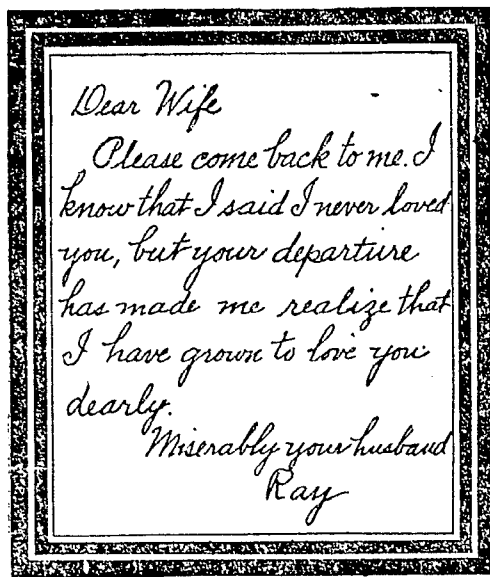 Dear Wife
Please come back to me. I
know that I said I never loved
you, but your departure
has made me realize that
I have grown to love you
dearly.
Miserably your husband
Ray